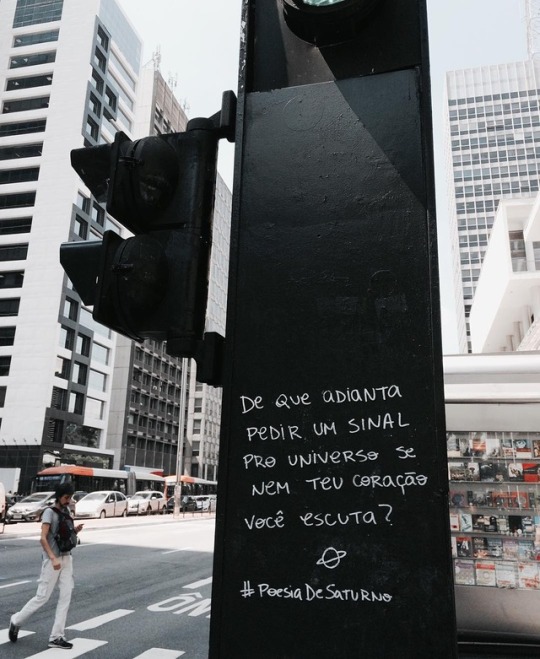 De que adianta
pedir um sinal
pro universo se
nem teu coração
você escuta?
#PoesiaDeSaturno